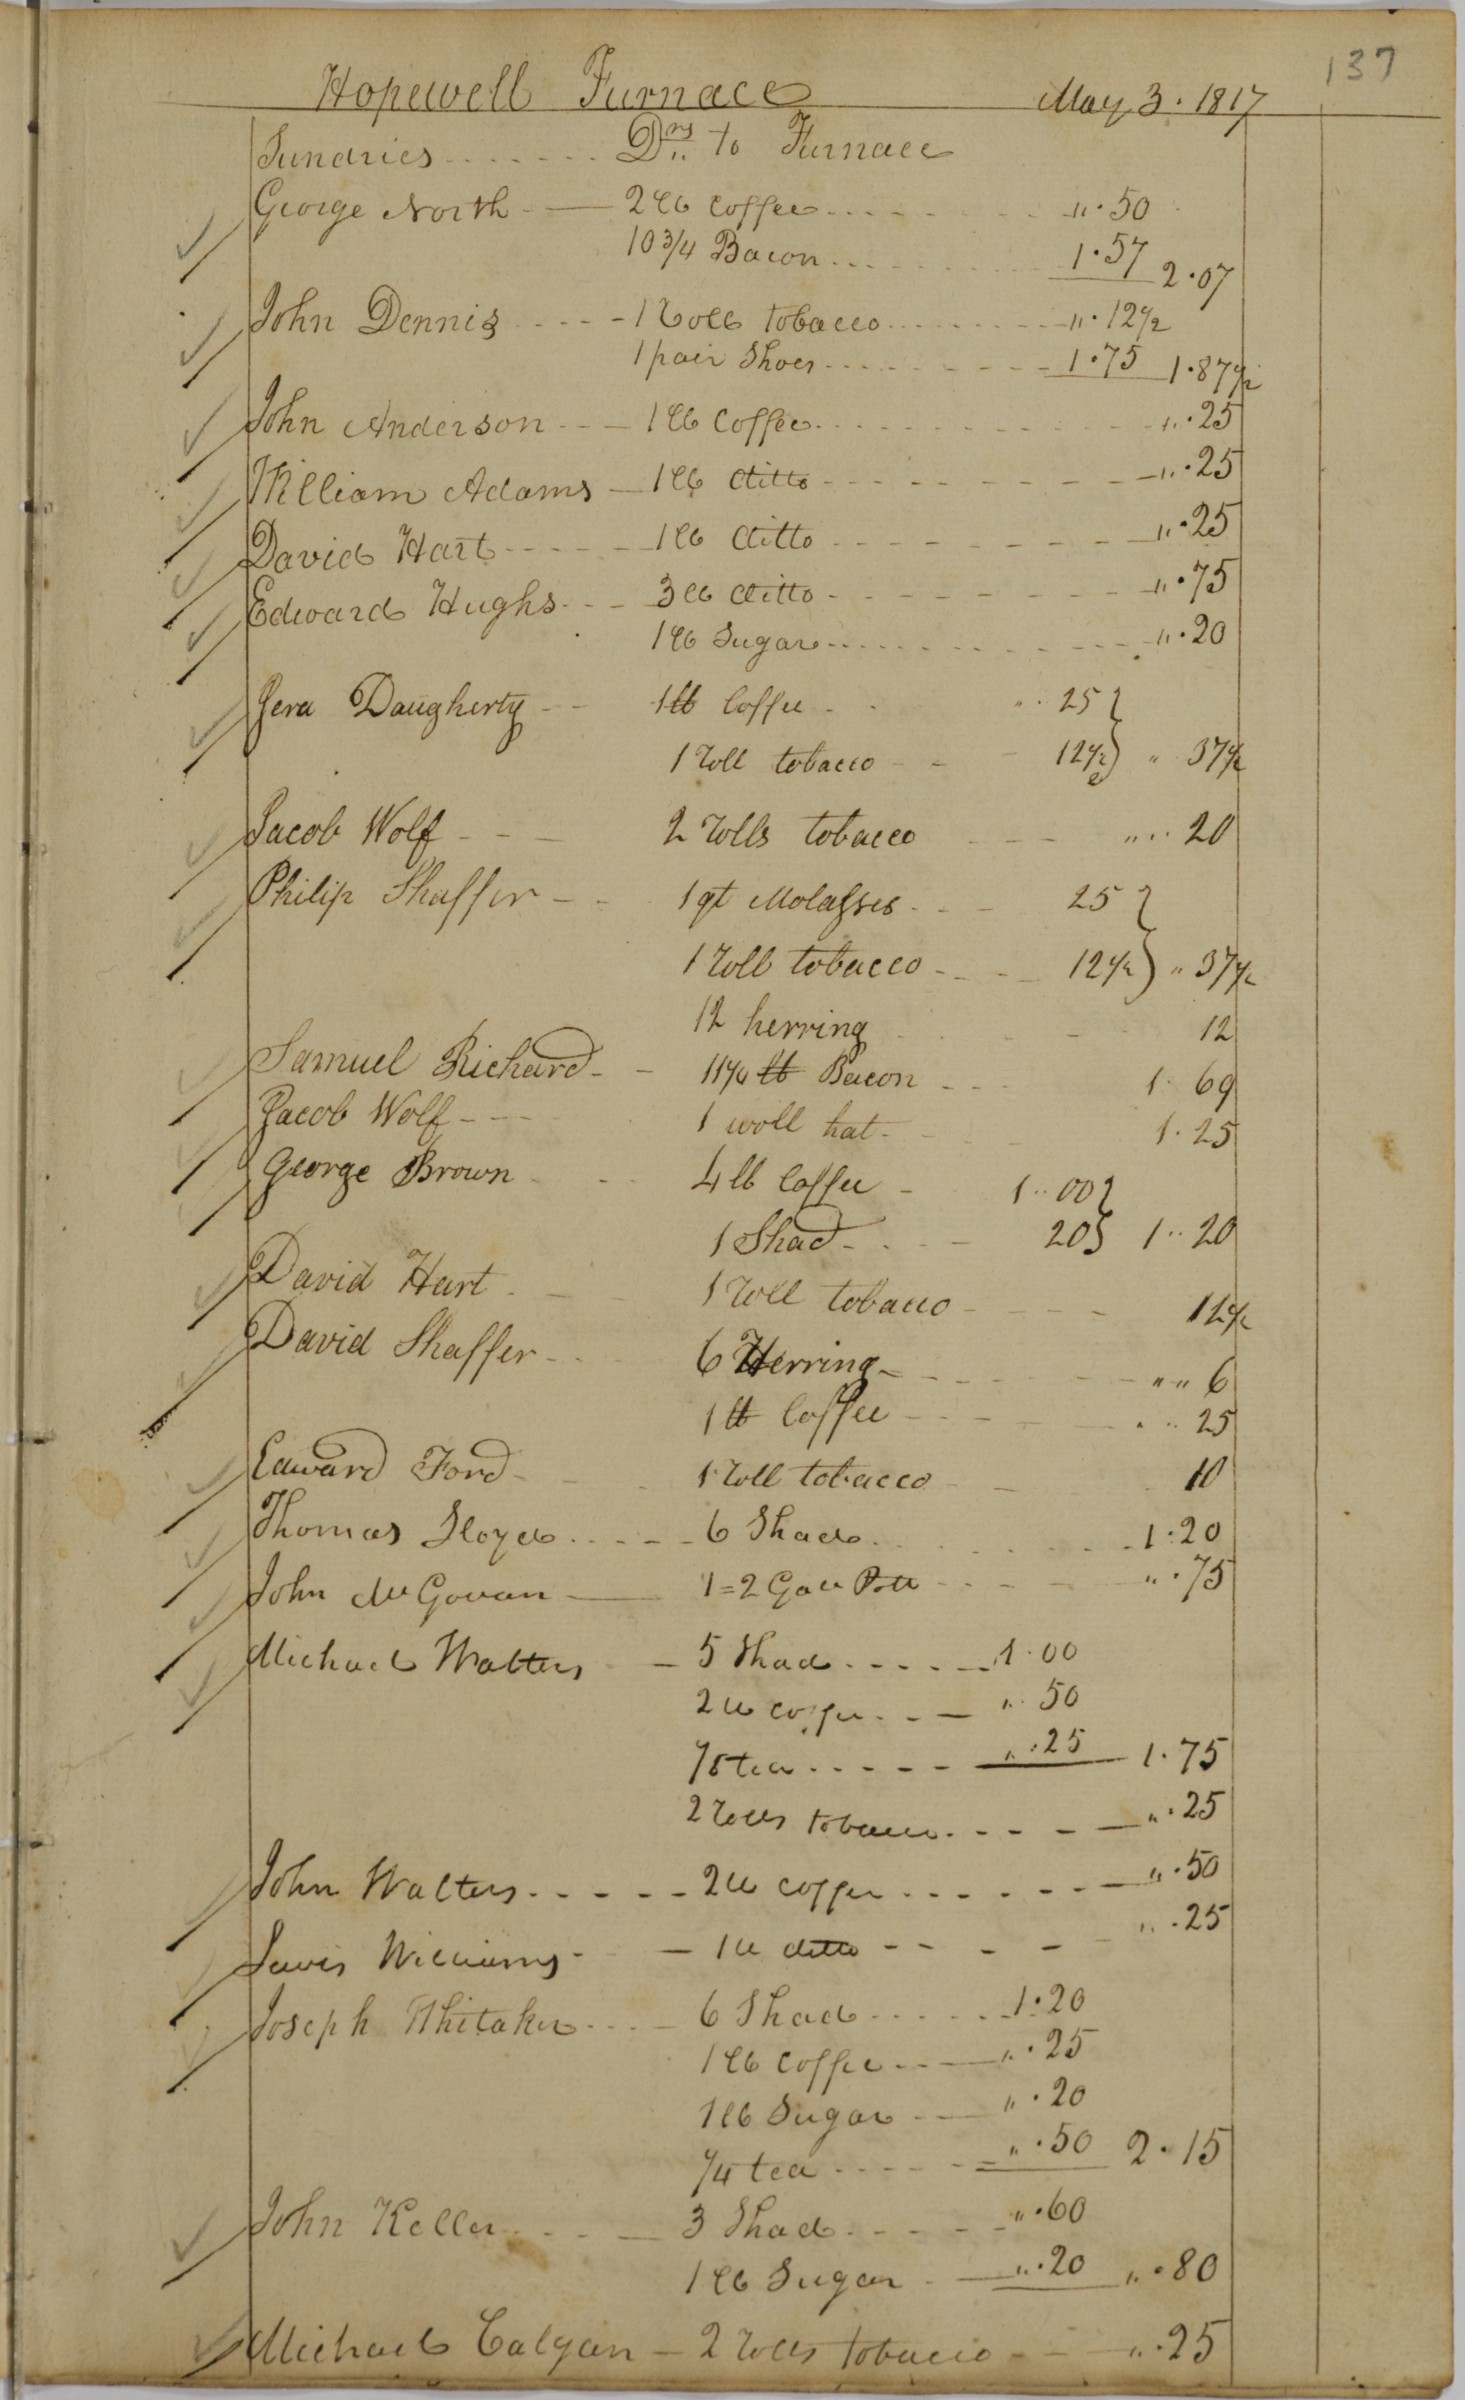 137
Hopewell Furnace May 3. 1817
Sundries Drs to Furnace
George North 2 lb Coffee ".50
10 3/4 Bacon 1.57 2.07
John Dennis 1 Roll tobacco ".12 1/2
1 pair Shoes 1.75 1.87 1/2
John Anderson 1 lb Coffee ".25
William Adams 1 lb ditto ".25
David Hart 1 lb ditto ".25
Edward Hughs 3 lb ditto ".75
1 lb Sugar ".20
Daugherty 1 lb Coffee 25
1 roll tobacco 12 1/2 " 37 1/2
Jacob Wolf 2 rolls tobacco " 20
Philip Shaffer 1 qt Molasses 25
1 roll tobacco 12 1/2 " 37 1/2
12 herring 12
Samuel Richard lb Bacon 1. 69
Jacob Wolf 1 woll hat 1.25
George Brown 4 lb Coffee 1..00
1 Shad 20 1..20
David Hart 1 roll tobacco 12 1/2
David Shaffer 6 Herring " " 6
1 lb Coffee 25
Edward Ford 1 roll tobacco 10
Thomas Lloyd 6 Shad 1.20
John McGowan 1=2 Gall Pott ".75
Michael Walters 5 Shad 1.00
2 lb coffee " 50
1/8 tea ".25 1.75
2 rolls tobacco ".25
John Walters 2 lb coffee ".50
Lewis Williams 1 lb ditto ".25
Joseph Whitaker 6 Shad 1.20
1 lb Coffee ".25
1 lb Sugar ".20
1/4 tea ".50 2.15
John Keller 3 Shad ".60
1 lb Sugar ".20 ".80
Michael Calgan 2 rolls tobacco ".25